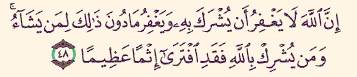 إِنَّ ٱللَّهَ لَا يَغْفِرُ أَن يُشْرَكَ بِهِۦ وَيَغْفِرُ مَا دُونَ ذَٰلِكَ لِمَن يَشَآءُ ۚ
وَمَن يُشْرِكْ بِٱللَّهِ فَقَدِ ٱفْتَرَىٰٓ إِثْمًا عَظِيمًا ٤٨